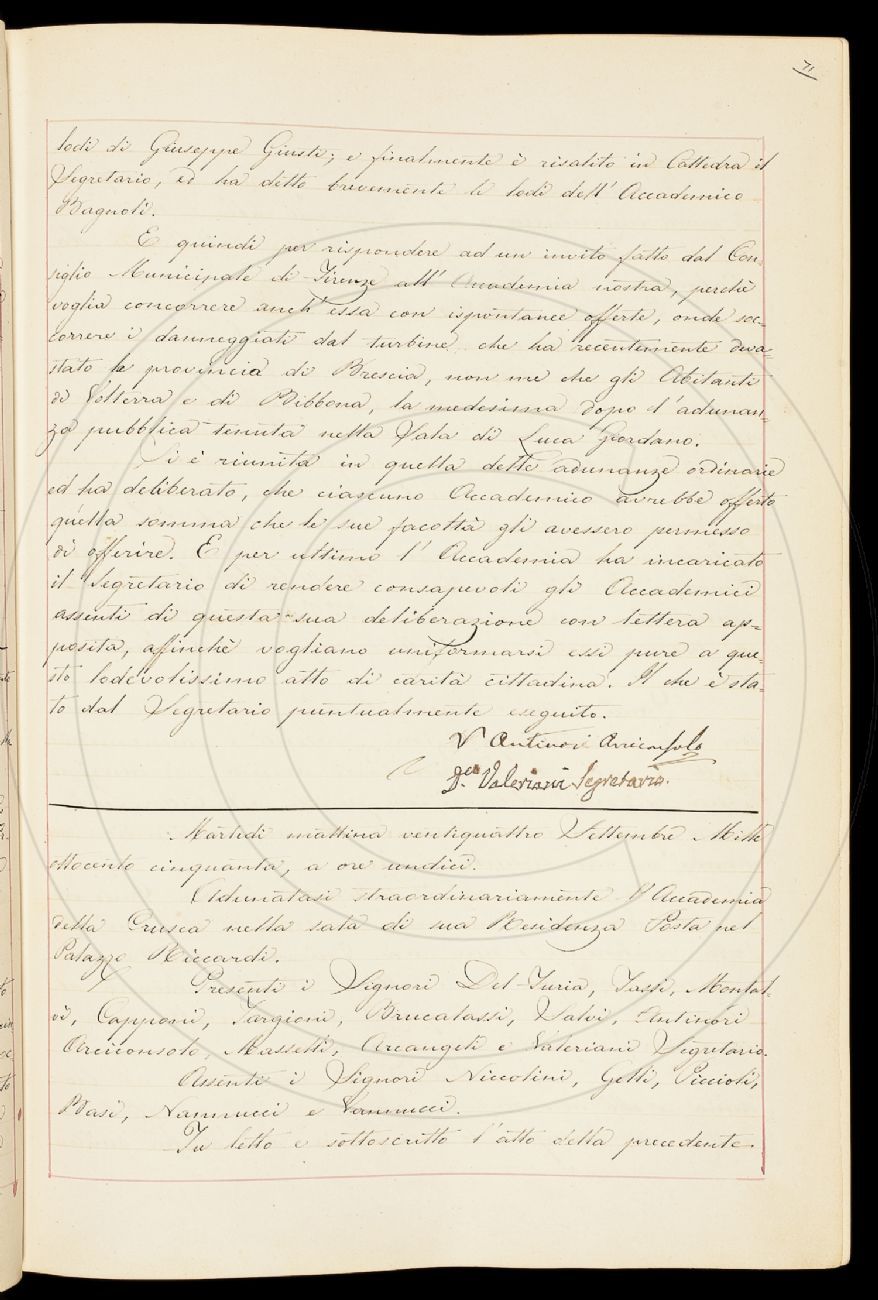 71
lodi di Giuseppe Giusti; e finalmente è risalito in Cattedra il
Segretario, ed ha detto brevemente le lodi dell' Accademico
Bagnoli.
E quindi per rispondere ad un invito fatto dal Con-
siglio Municipale di Firenze all' Accademia nostra, perchè
voglia concorrere anch' essa con ispontanee offerte, onde soc-
correre i danneggiati dal turbine che ha recentemente deva-
stato la provincia di Brescia, non me che gli Abitanti
di Volterra e di Bibbona, la medesima dopo l' adunan-
za pubblica tenuta nella Sala di Luca Giordano.
Si è riunita in quella delle adunanze ordinarie
ed ha deliberato, che ciascuno Accademico avrebbe offerto
quella somma che le sue facoltà gli avessero permesso
di offerire. E per ultimo l' Accademia ha incaricato
il Segretario di rendere consapevoli gli Accademici
assenti di questa sua deliberazione con lettera ap-
posita, affinchè vogliano uniformarsi essi pure a que-
sto lodevolissimo atto di carità cittadina. Il che è sta-
to dal Segretario puntualmente eseguito.
V Antinori Arciconsolo
Valeriani Segretario.
Martedì mattina ventiquattro Settembre Mille
ottocento cinquanta, a ore undici.
Adunatasi straordinariamente l' Accademia
della Crusca nella sala di sua Residenza Posta nel
Palazzo Riccardi.
Presenti i Signori Del-Furia, Tassi, Montal-
vi, Capponi, Targioni, Brucalassi, Salvi, Antinori
Arciconsolo, Masselli, Arcangeli e Valeriani Segretario.
Assenti i Signori Niccolini, Gelli, Piccioli,
Basi, Nannucci e Vannucci.
Fu letto e sottoscritto l' atto della precedente